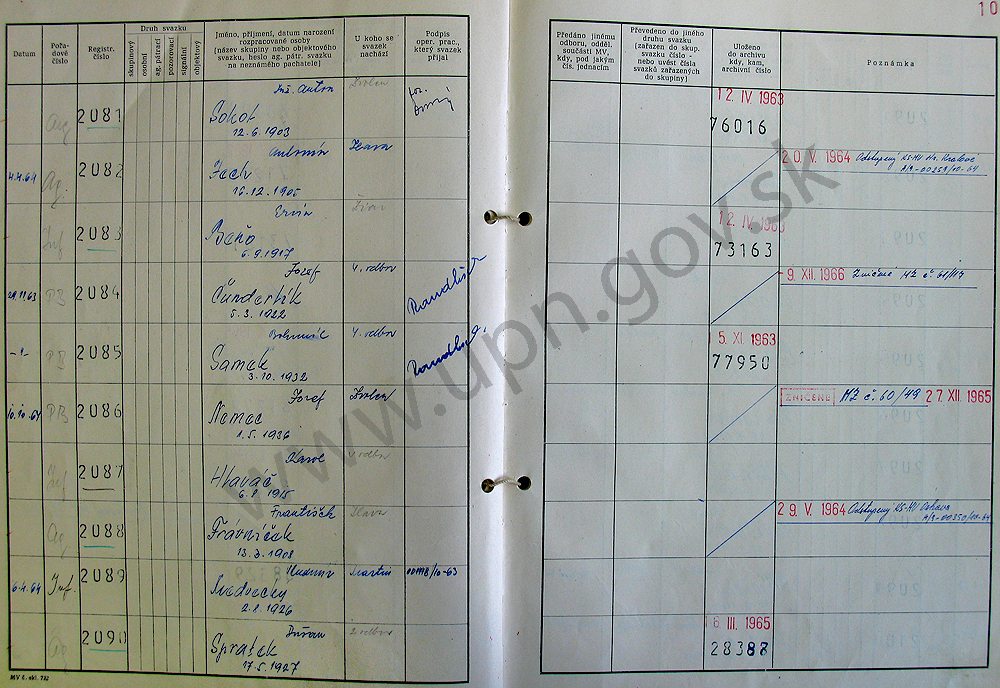 10
Datum
Pořadové číslo
Registr. číslo
Druh svazku
skupinový
osobní
ag. pátrací
pozorovací
signální
objektový
Jméno, příjmení, datum narození
rozpracované osoby
(název skupiny nebo objektového
svazku, heslo ag. pátr. svazku
na neznámého pachatele)
U koho se
svazek
nachází
Podpis
oper. prac.,
který svazek
přijal
Předáno jinému
odboru, odděl.
součásti MV,
kdy, pod jakým
čís. jednacím
Převedeno do jiného
druhu svazku
(zařazen do skup.
svazku číslo -
nebo uvést čísla
svazků zařazených
do skupiny)
Uloženo
do archivu
kdy, kam,
archivní číslo
Poznámka
Ag 2081 Inž. Anton Zvolen
Sokol
12.6.1903
12. IV. 1963
76016
4.4.64 Ag. 2082 Antonín Ilava
Zech
16.12.1905
20. V. 1964 Odstúpený KS-MV Hr. Králové
A/3-00259/10-64
Inf 2083 Ervín
Beňo
6.9.1917
12. IV. 1963
73163
29.11.63 PB 2084 Jozef 4. odbor
Čunderlík
5.3.1922
9. XII. 1966 Zničené MZ č.
2085 Bohumil 4. odbor
Samek
3.10.1932
15. XI. 1963
77950
10.10.64 PB 2086 Jozef Zvolen
Nemec
1.5.1936
ZNIČENÉ MZ č. 60/49 27. XII. 1965
Inf 2087 Karol odbor
Hlaváč
6.8.1915
Ag 2088 František Ilava
Trávníček
13.3.1908
29. V. 1964 Odstúpený KS-MV Ostrava
A/3-00350/10-64
6.4.64 Inf. 2089 Vladimír Martin
Svedvecky
2.1.1926
Ag 2090 Dušan odbor
Spratek
17.5.1927
16 III. 1965
28388
MV 6. skl. 732
www.upn.gov.sk